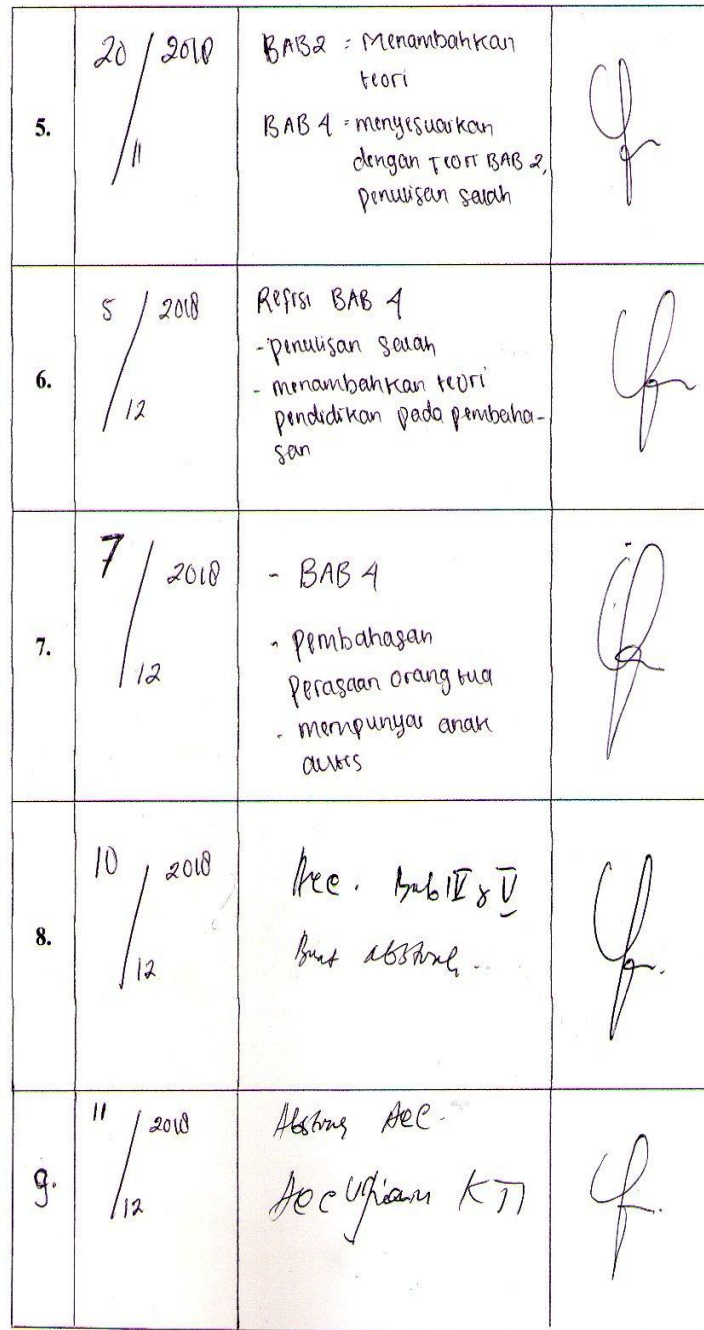 5.
20 / 2018
11
BAB 2 : Menambahkan
teori
BAB 4 : menyesuaikan
dengan teori BAB 2,
penulisan salah
6.
5 / 2018
12
Refisi BAB 4
- penulisan salah
- menambahkan teori
pendidikan pada pembaha-
san
7.
7 / 2018
12
- BAB 4
- pembahasan
perasaan orang tua
- mempunyai anak
autis
8.
10 / 2018
12
Acc. Bab IV & V
Buat abstrak.
9.
11 / 2018
12
Abstrak Acc.
Acc Ujian KTI